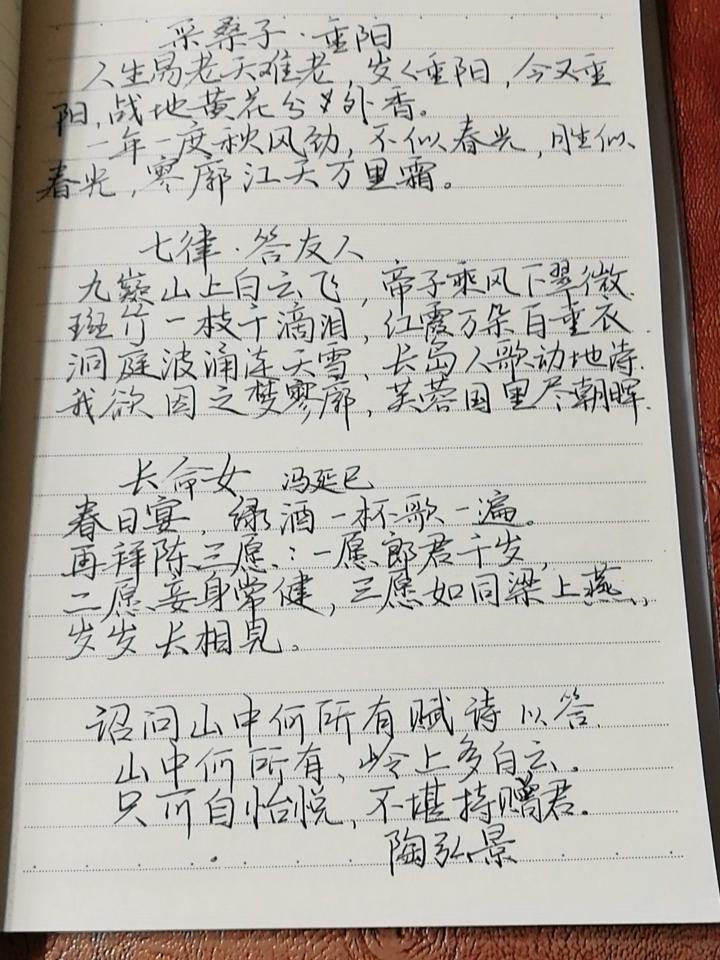 采桑子·重阳
人生易老天难老，岁々重阳，今又重
阳，战地黄花分外香。
一年一度秋风劲，不似春光，胜似
春光，寥廓江天万里霜。
七律·答友人
九嶷山上白云飞，帝子乘风下翠微
斑竹一枝千滴泪，红霞万朵百重衣
洞庭波涌连天雪，长岛人歌动地诗
我欲因之梦寥廓，芙蓉国里尽朝晖
长命女 冯延巳
春日宴，绿酒一杯歌一遍。
再拜陈三愿：一愿郎君千岁，
二愿妾身常健，三愿如同梁上燕，
岁岁长相见。
诏问山中何所有赋诗以答
山中何所有，岭上多白云。
只可自怡悦，不堪持赠君。
陶弘景